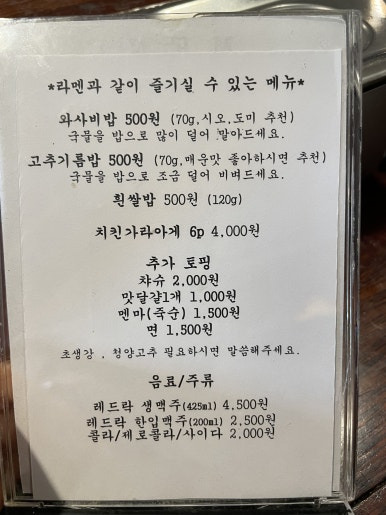 *라멘과 같이 즐기실 수 있는 메뉴*
와사비밥 500원 (70g,시오,도미 추천)
국물을 밥으로 많이 덜어 말아드세요.
고추기름밥 500원 (70g,매운맛 좋아하시면 추천)
국물을 밥으로 조금 덜어 비벼드세요.
흰쌀밥 500원 (120g)
치킨가라아게 6p 4,000원
추가 토핑
챠슈 2,000원
맛달걀1개 1,000원
멘마(죽순) 1,500원
면 1,500원
초생강 , 청양고추 필요하시면 말씀해주세요.
음료/주류
레드락 생맥주(425ml) 4,500원
레드락 한입맥주(200ml) 2,500원
콜라/제로콜라/사이다 2,000원